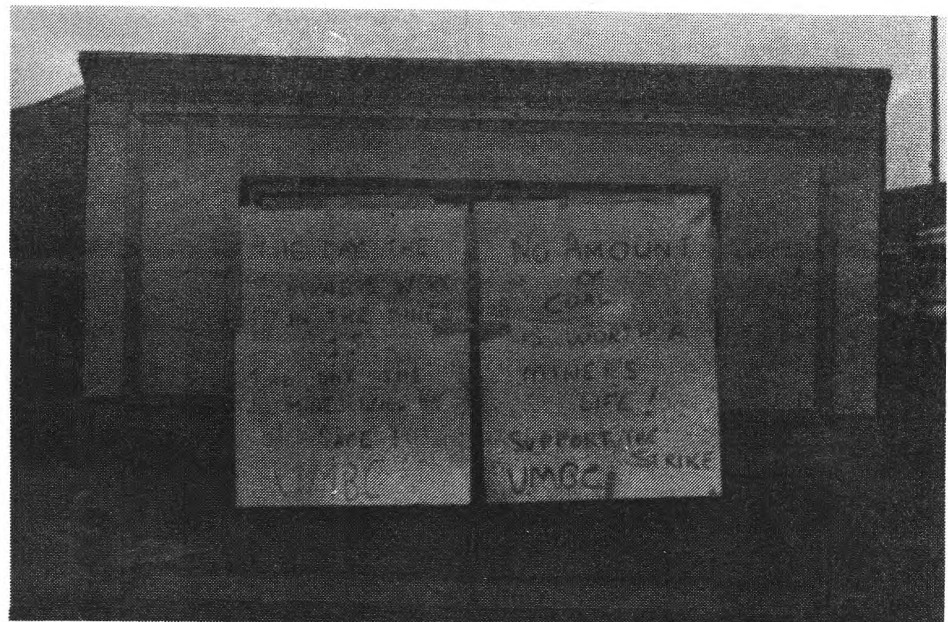 THE DAY THE
WORK
IN THE MINES
IS
THE DAY THE
MINES WILL BE
SAFE!
UMBC
NO AMOUNT
OF
COAL
IS WORTH A
MINERS
LIFE!
SUPPORT THE
STRIKE
UMBC